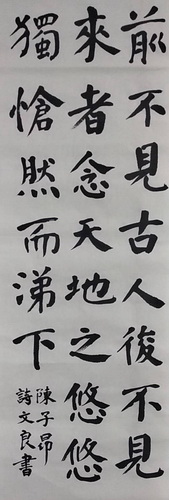 前不見古人後不見
來者念天地之悠悠
獨愴然而涕下
陳子昂
詩文良書